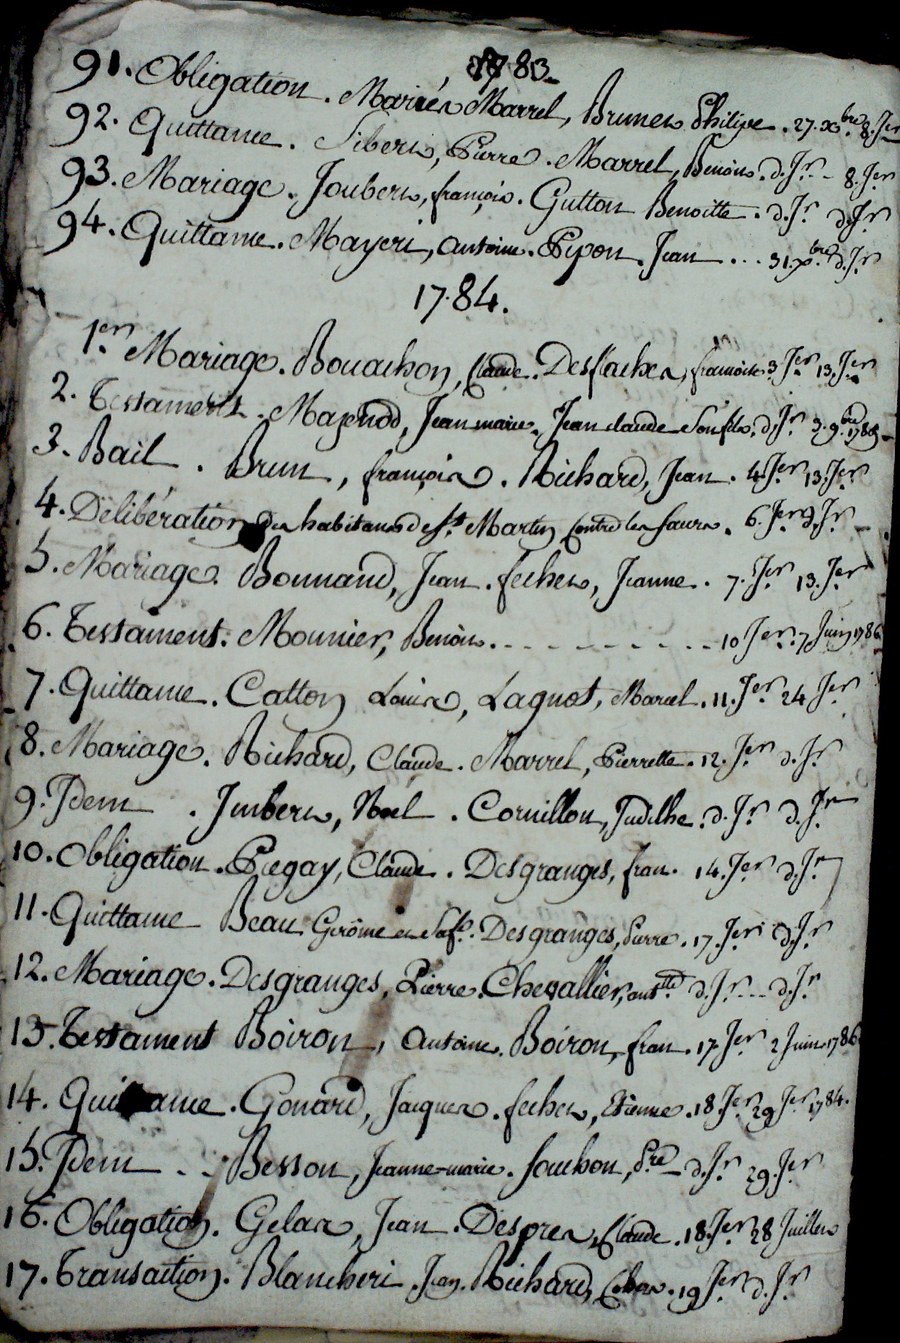 1783
91. Obligation. Mariés Marrel, Brunet Philipe. 27. Xbre. 8. Jer
92. Quittance. Sibert, Pierre. Marrel, Benoit. d. Jr. 8. Jer
93. Mariage. Joubert, françois. Gutton Benoitte. d. Jr d. Jr
94. Quittance. Mayeri, Antoine. Pipon Jean ... 31. Xbre. d. Jr
1784.
1er Mariage. Bouachon, Claude. Desflaches, francoise. 3 Jer 13. Jer
2. Testament. Jean marie. Jean claude Son fils. d. Jr. 3. 9bre 1785
3. Bail. Brun, françois. Richard, Jean. 4. Jer 13. Jer
4. Délibération des habitans de St. Martin Contre les 6. Jer d. Jr
5. Mariage. Bonnand, Jean. fechet, Jeanne. 7. Jer 13. Jer
6. Testament. Mounier, Benoit. - - - - - - 10 Jer. 7 Juin 1786
7. Quittance. Catton Louis, Lagnot, Marcel. 11. Jer 24 Jer
8. Mariage. Richard, Claude. Marrel, Pierrette. 12. Jer d. Jr
9. Idem. Imbert, Noel. Cornillon, Judithe. d. Jr d. Jr
10. Obligation. Piegay, Claude. Desgranges, fran. 14. Jer d. Jr
11. Quittance Beau Gerôme et Safe. Desgranges, Pierre. 17. Jer d. Jr
12. Mariage. Desgranges, Pierre. Chevallier, antte d. Jr. - - d. Jr
13. Testament Boiron, Antoine. Boiron, fran. 17 Jer 2 Juin 1786
14. Quittance. Gonard, Jacques. fechet, Etienne. 18. Jer 29 Jer 1784.
15. Idem - . . Besson, Jeanne-marie. fouchon, Pre d. Jr 29. Jer
16. Obligation. Gelas, Jean. Despres, Claude. 18. Jer 28 Juillet
17. Transaction. Blancheri Jean Richard, 19 Jer d. Jr